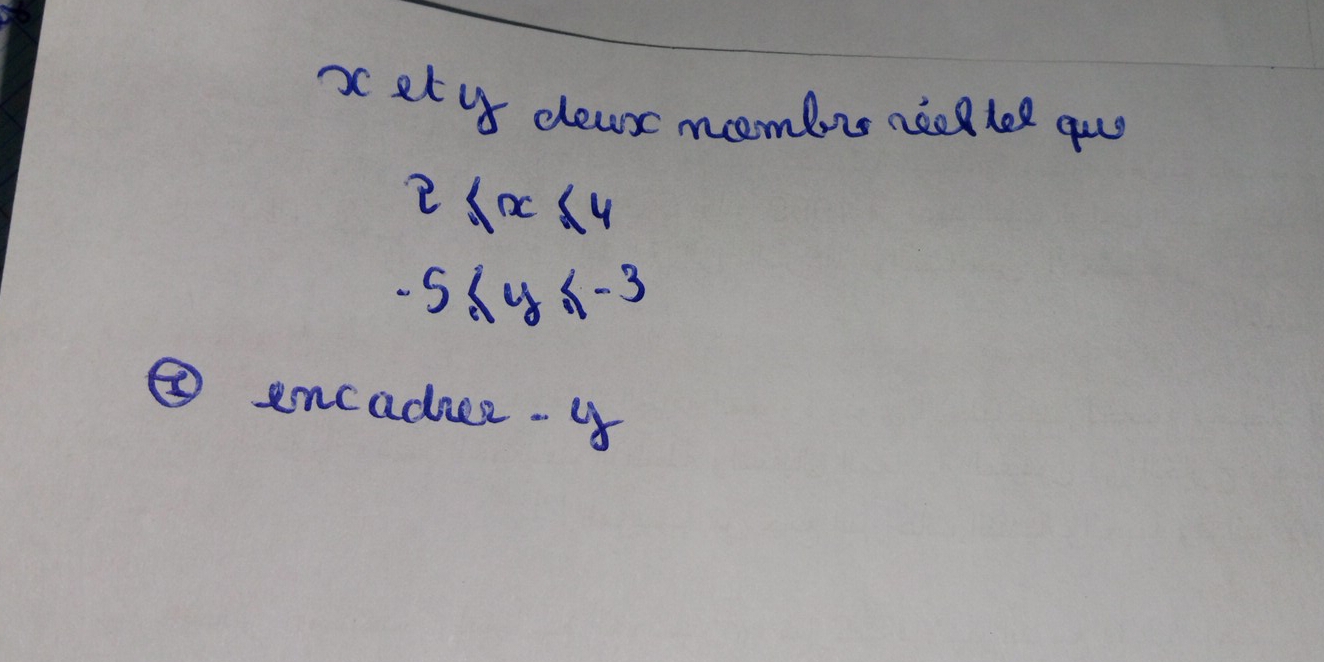 x et y deux nombre réel tel que
2 ⩽ x ⩽ 4
-5 ⩽ y ⩽ -3
① encadrer - y